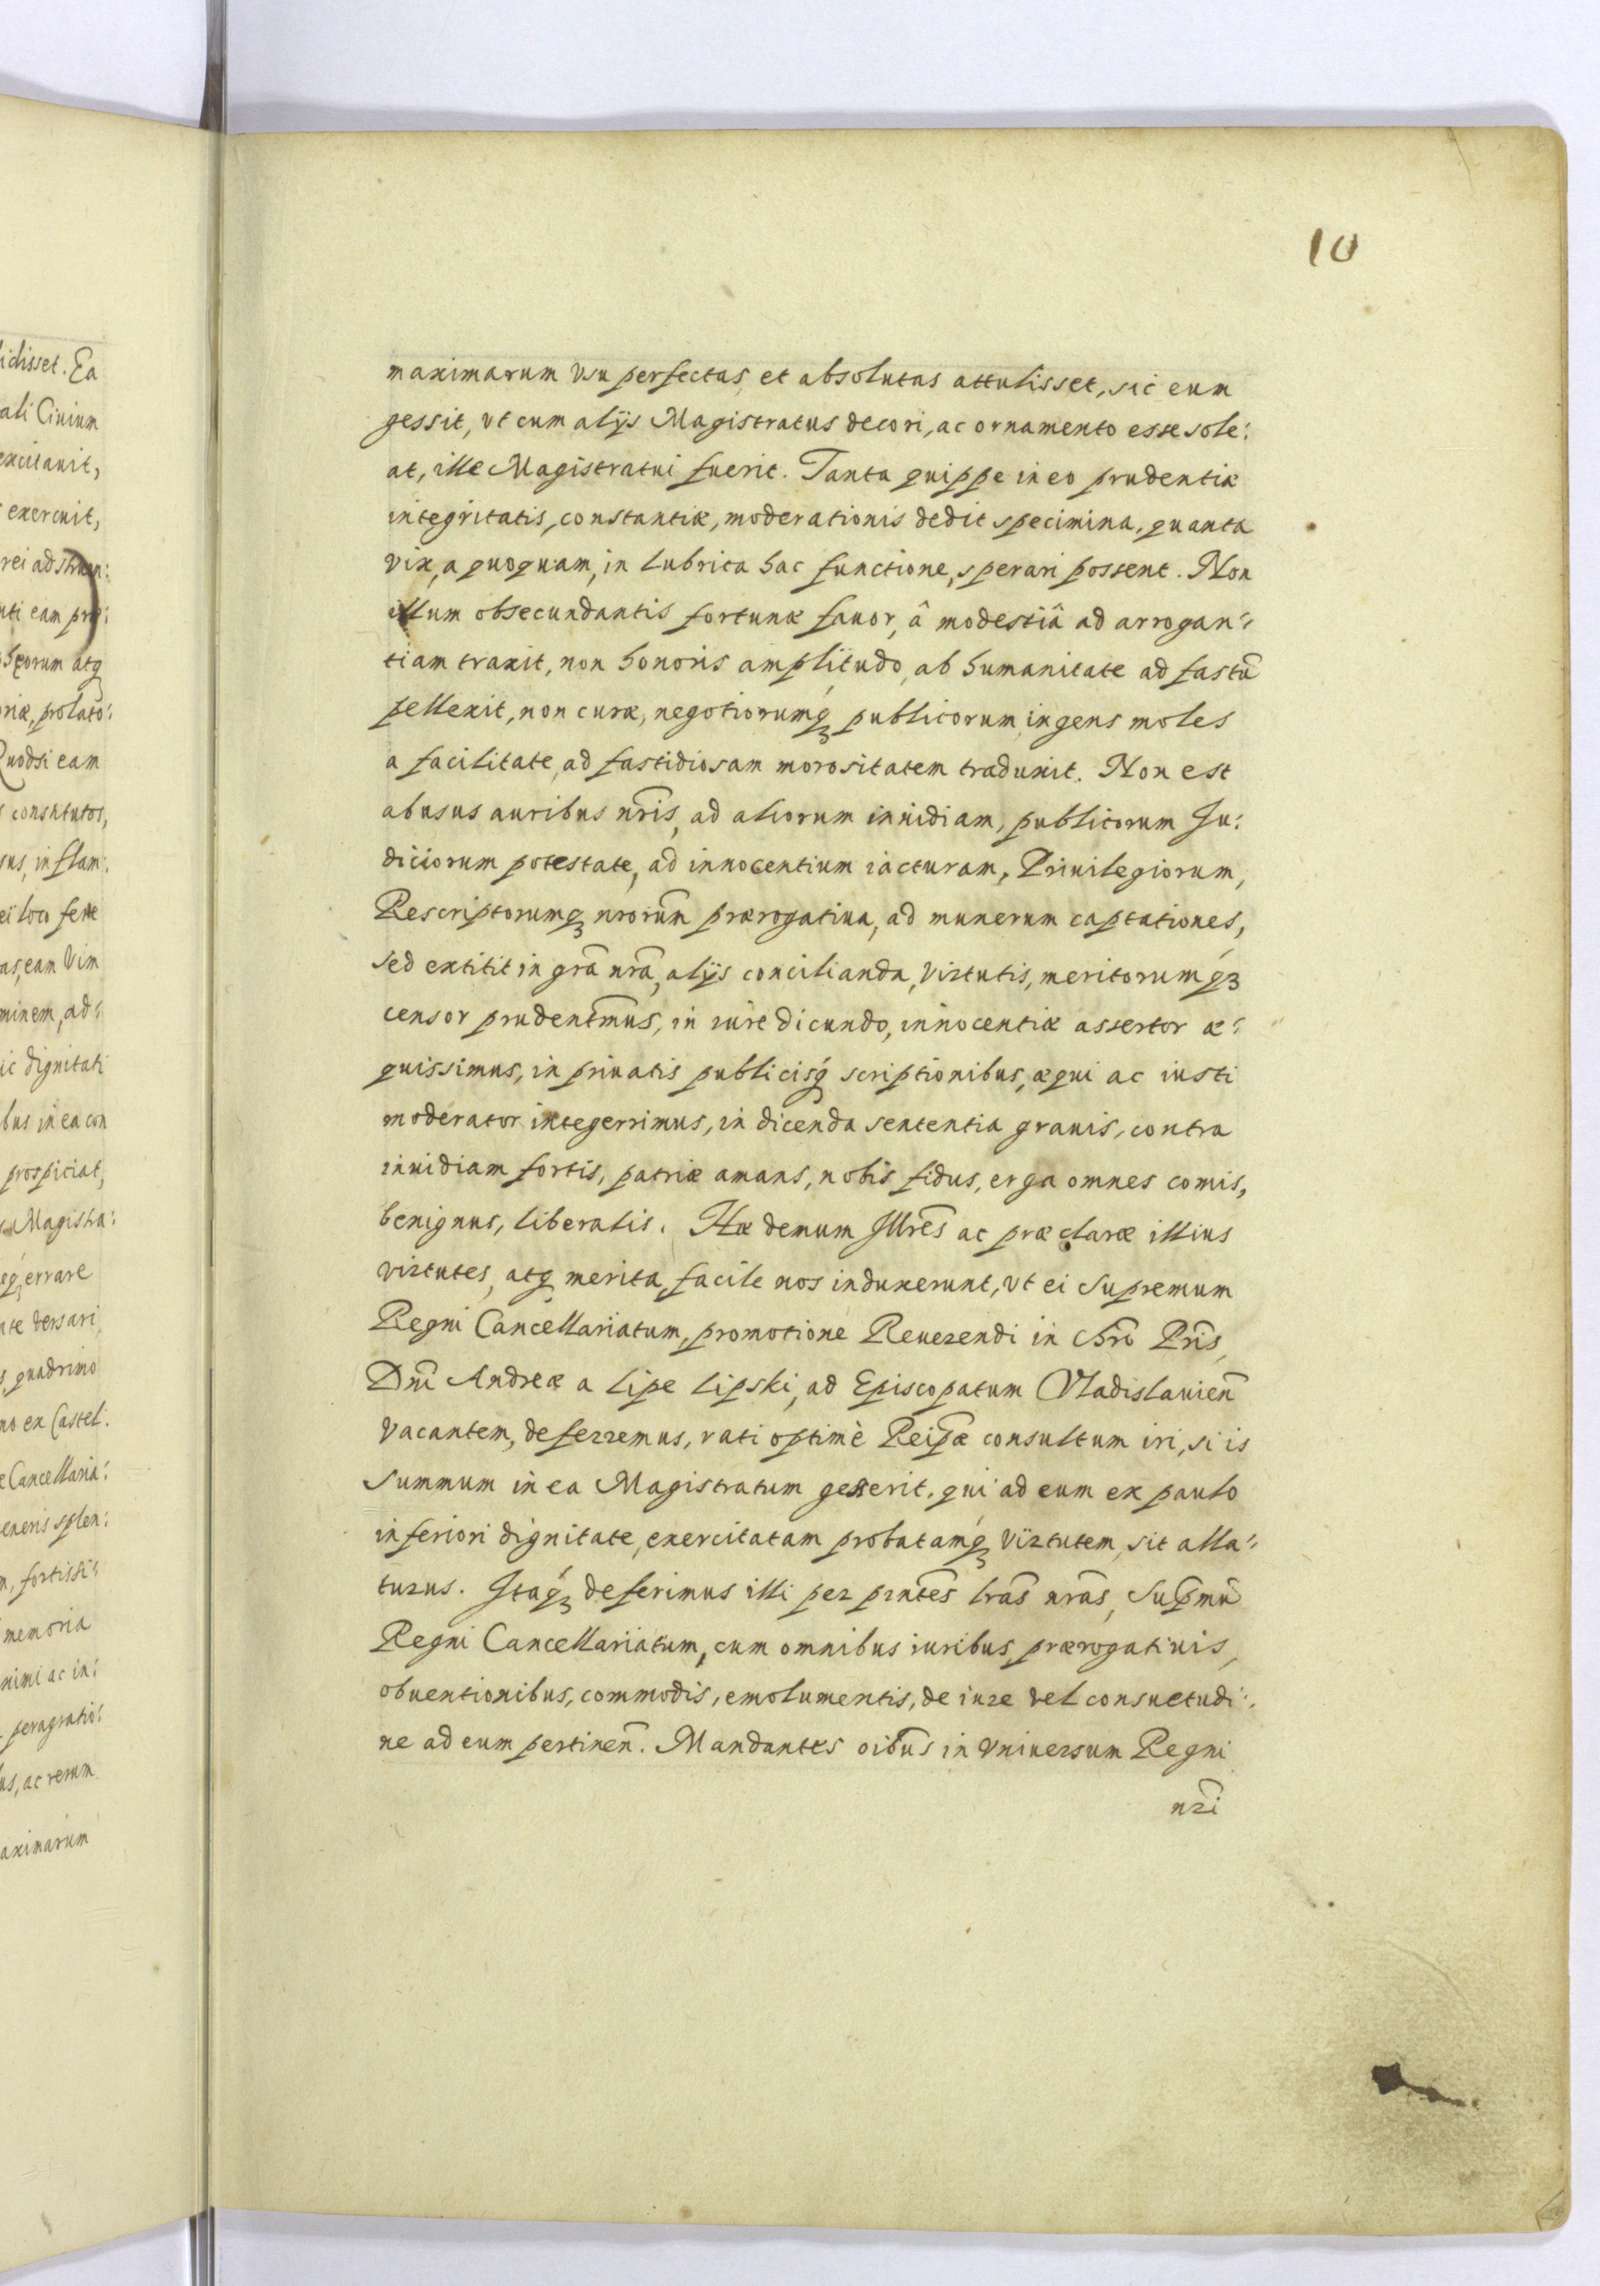 10
maximarum vsu perfectas, et absolutas attulisset, sic eum
gessit, vt cum alijs Magistratus decori, ac ornamento esse sole:
at, ille Magistratui fuerit. Tanta quippe in eo prudentiæ
integritatis, constantiæ, moderationis dedit specimina, quanta
vix, a quoquam, in lubrica hac functione, sperari possent. Non
illum obsecundantis fortunæ fauor, â modestiâ ad arrogan:
tiam traxit, non honoris amplitudo, ab humanitate ad fastũ
pellexit, non curæ, negotiorumq́ꝫ publicorum, ingens moles
a facilitate, ad fastidiosam morositatem traduxit. Non est
abusus auribus nr̃is, ad aliorum inuidiam, publicorum Ju:
diciorum potestate, ad innocentium iacturam, Priuilegiorum,
Rescriptorumqꝫ nrorũm prærogatiua, ad munerum captationes,
sed extitit in gr̃a nr̃a, alijs concilianda, virtutis, meritorumq́ꝫ
censor prudentm̃us, in iure dicundo, innocentiæ assertor æ:
quissimus, in priuatis publicisq́ scriptionibus, æqui ac iusti
moderator integerrimus, in dicenda sententia grauis, contra
inuidiam fortis, patriæ amans, nobis fidus, erga omnes comis,
benignus, liberalis. Hæ demum Jllr̃es ac præclaræ illius
virtutes, atqꝫ merita, facile nos induxerunt, vt ei Supremum
Regni Cancellariatum, promotione Reuerendi in Chr̃o Pr̃is,
Dñi Andreæ a Lipe Lipski, ad Episcopatum Vladislauieñ
vacantem, deferremus, rati optimè Reip̃æ consultum iri, si is
Summum in ea Magistratum gesserit, qui ad eum ex paulo
inferiori dignitate, exercitatam probatamq́ꝫ virtutem, sit alla:
turus. Jtaq́ꝫ deferimus illi per pr̃ntes lr̃as nr̃as, Sup̃mũ
Regni Cancellariatum, cum omnibus iuribus, prærogatiuis,
obuentionibus, commodis, emolumentis, de iure vel consuetudi:
ne ad eum pertineñ. Mandantes oib̃us in vniuersum Regni
nr̃i